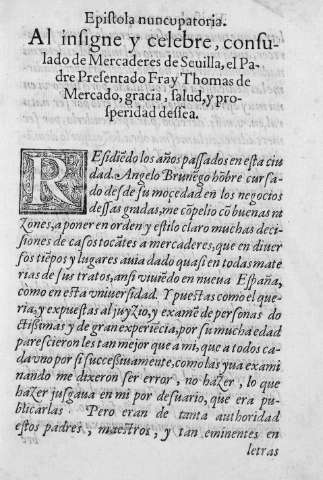 Epistola nuncupatoria.
Al insigne y celebre, consu-
lado de Mercaderes de Seuilla, el Pa-
dre Presentado Fray Thomas de
Mercado, gracia, salud, y pro-
speridad dessea.
REsidiẽdo los años passados en esta ciu
dad. Angelo Brunẽgo hõbre cursa-
do desde su moçedad en los negocios
dessas gradas, me cõpelio cõ buenas ra
zones, a poner en orden y estilo claro muchas deci-
siones de casos tocãtes a mercaderes, que en diuer
sos tiẽpos y lugares auia dado quasi en todas mate
rias de sus tratos, ansi viuiẽdo en nueua España,
como en esta vniuersidad. Y puestas como el que-
ria, y expuestas al juyzio, y examẽ de personas do
ctissimas y de gran experiẽcia, por su mucha edad
parescieron les tan mejor que a mi, que a todos ca-
da vno por si successiuamente, como las yua exami
nando me dixeron ser error, no hazer, lo que
hazer juzgaua en mi por desuario, que era pu-
blicarlas. Pero eran de tanta authoridad
estos padres, maestros, y tan eminentes en
letras